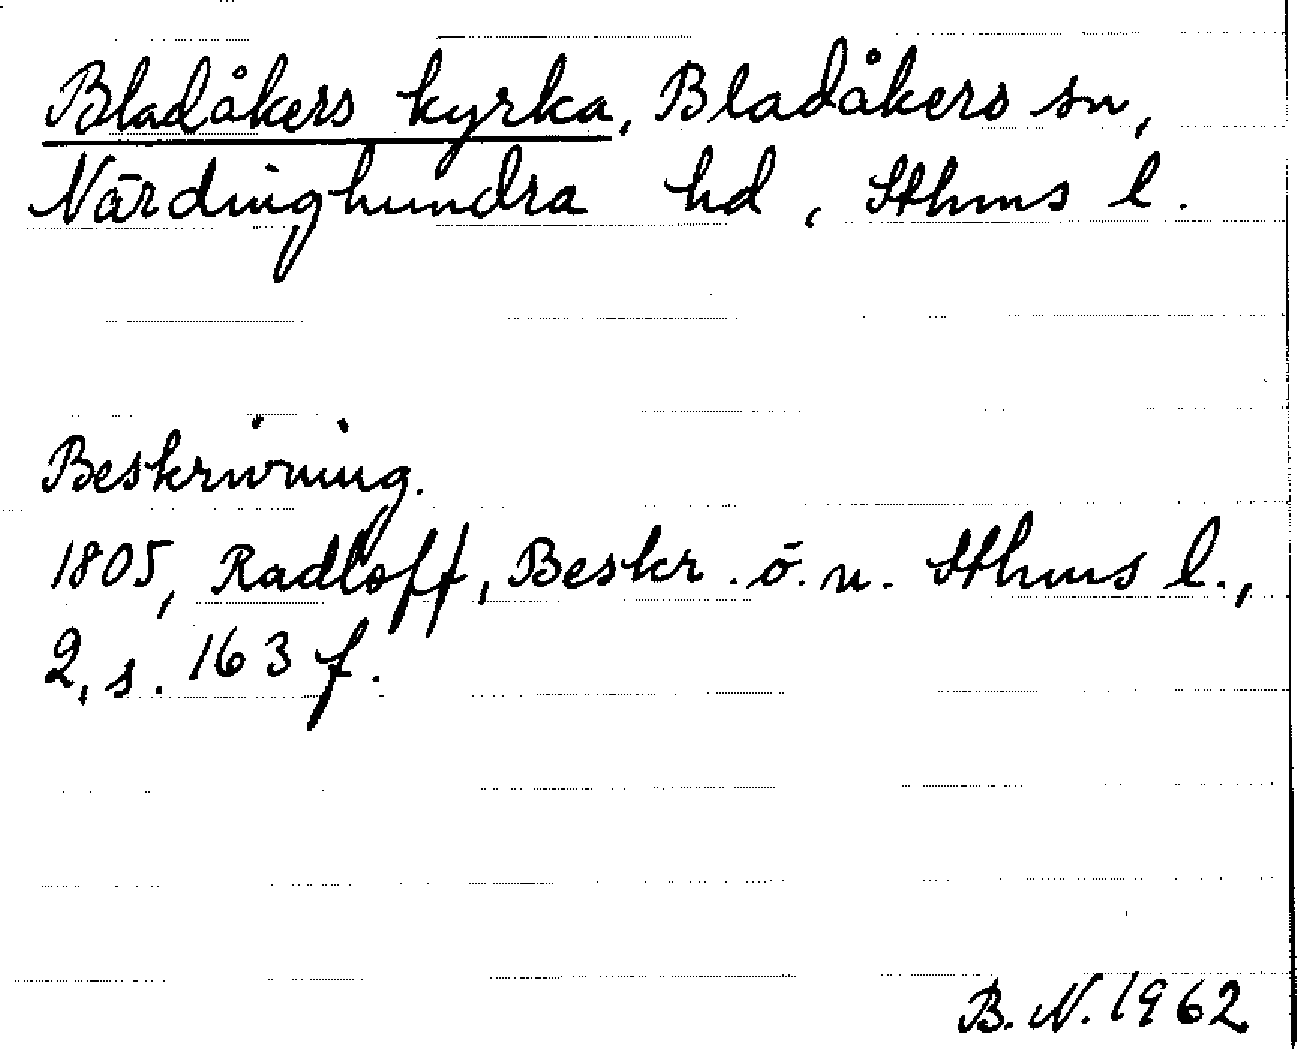 Bladåkers kyrka, Bladåkers sn,
Närdinghundra hd, Sthms l.
Beskrivning.
1805, Radloff, Beskr. ö. n. Sthms l.,
2, s. 163 f.
B. N. 1962